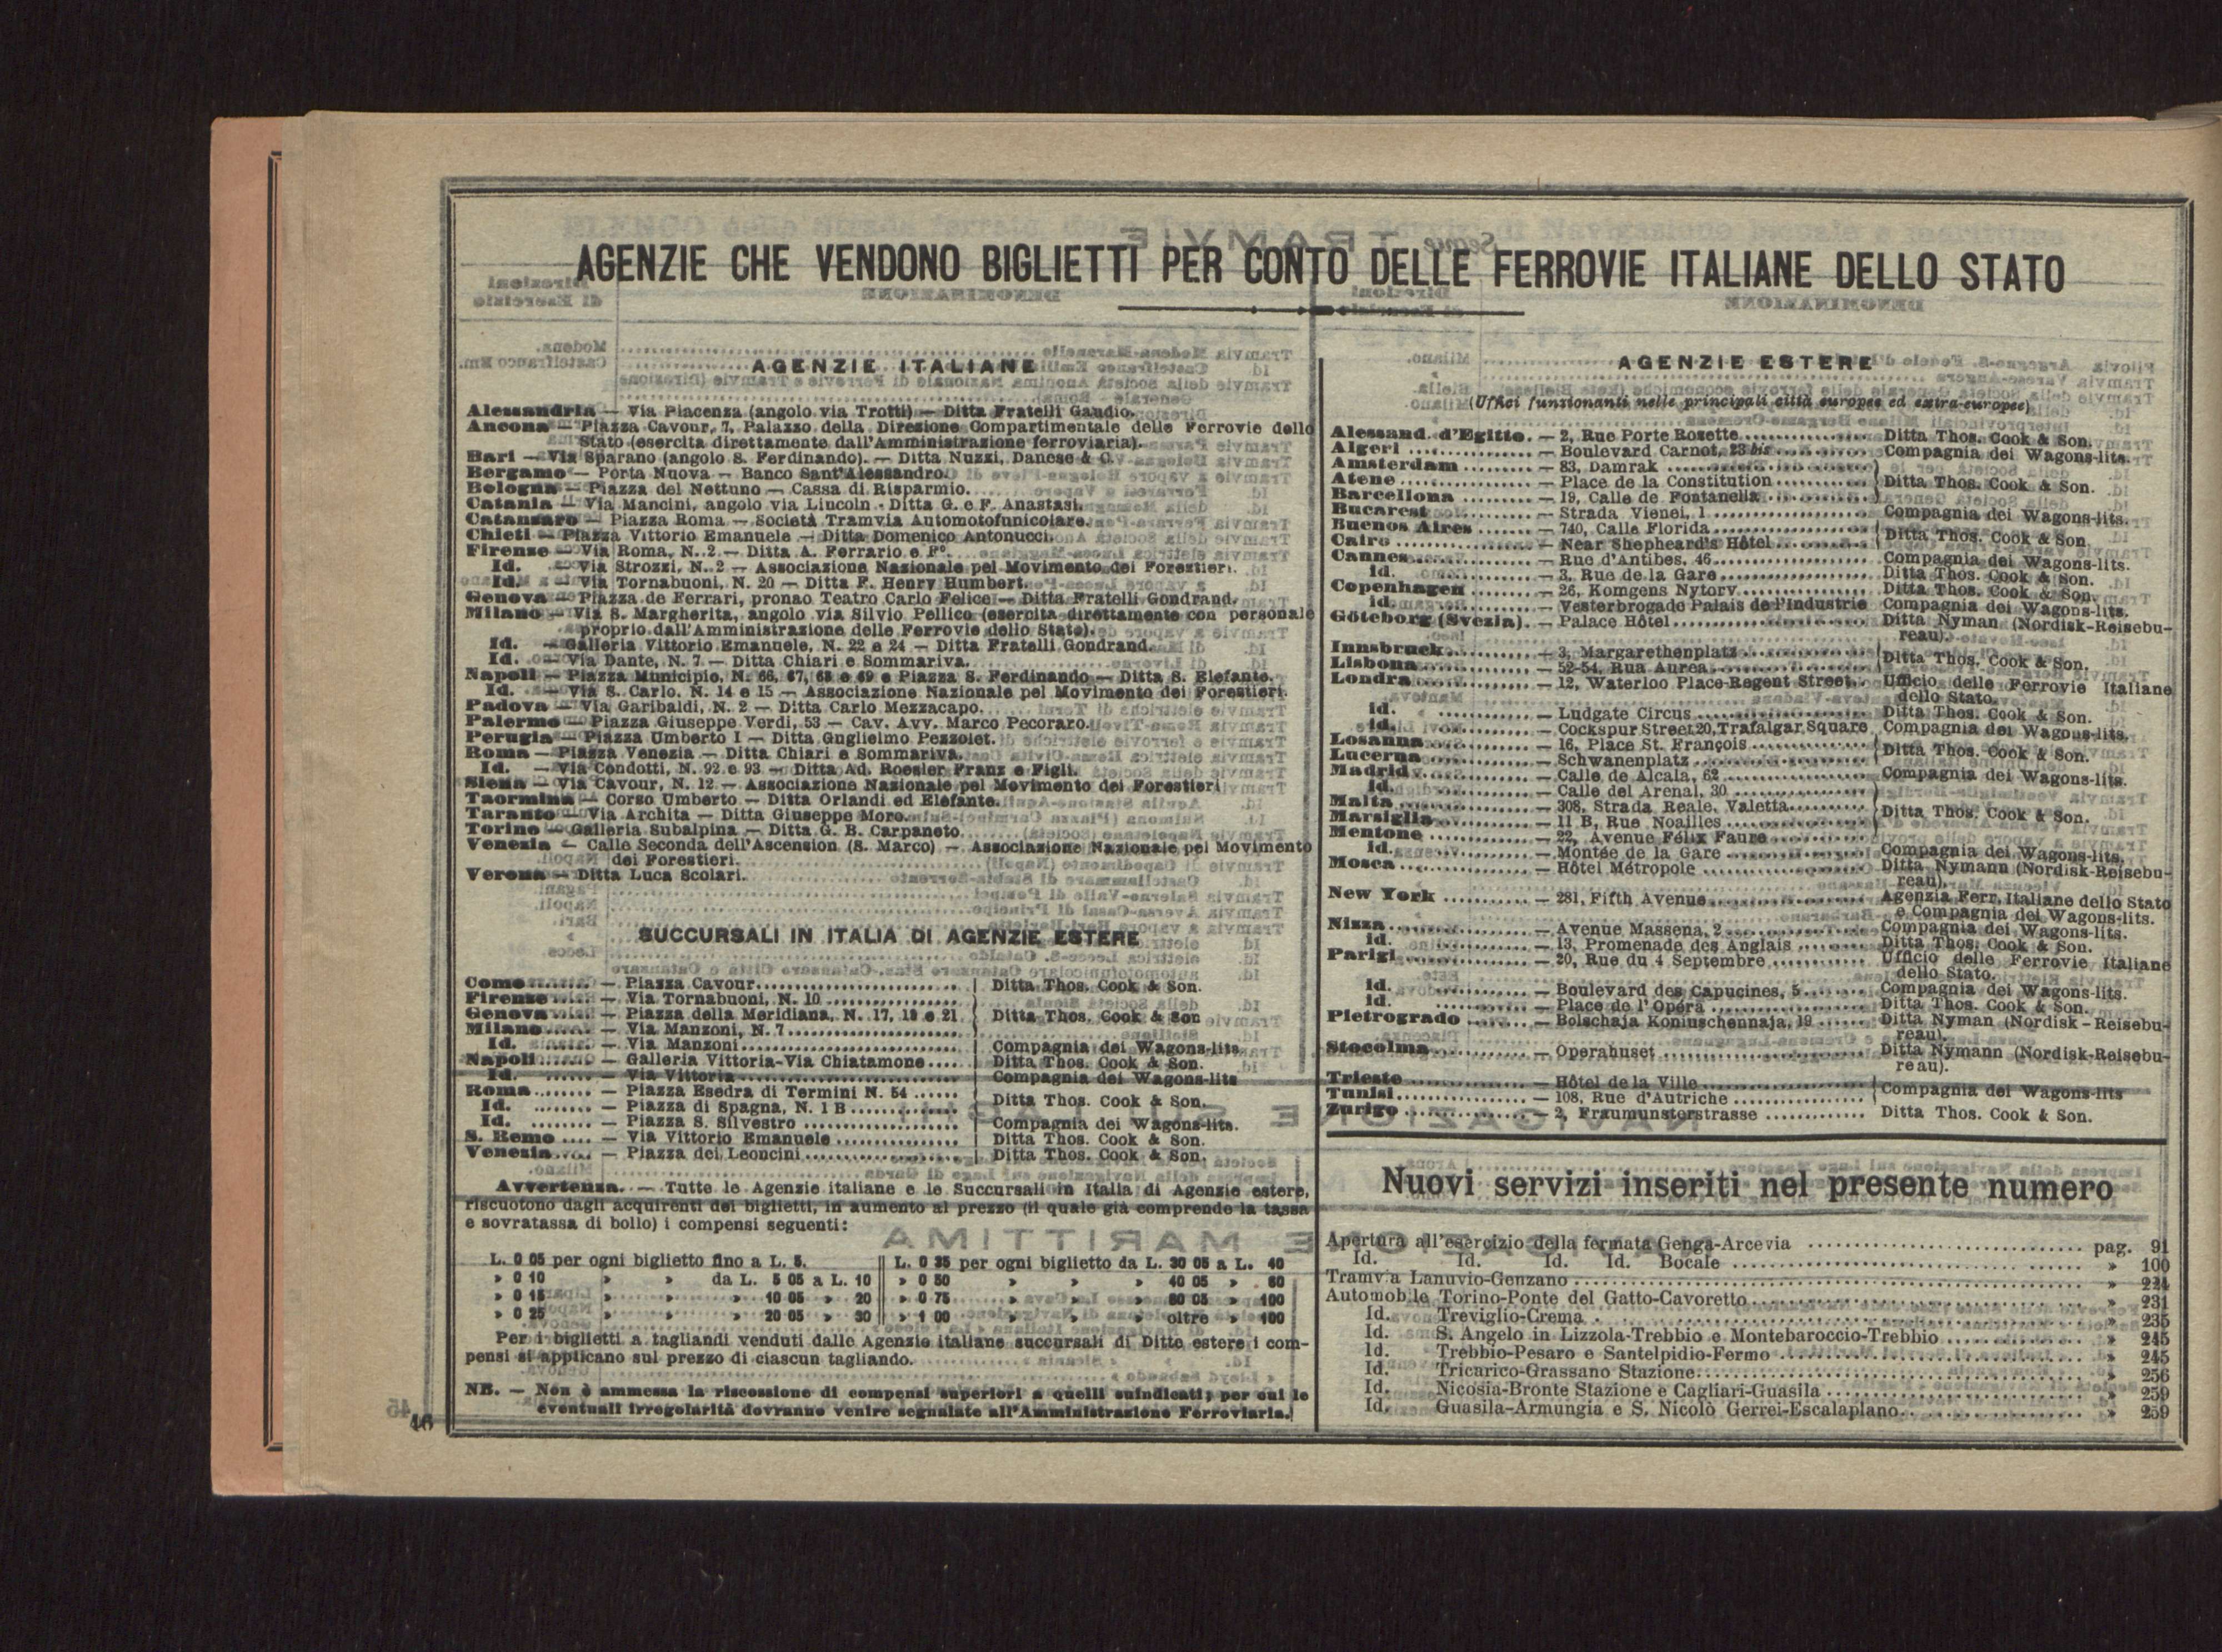 AGENZIE CHE VENDONO BIGLIETTI PER CONTO DELLE FERROVIE ITALIANE DELLO STATO
AGENZIE ITALIANE
Alessandria — Via Piacenza (angolo via Trotti) — Ditta Fratelli Gaudio.
Ancona — Piazza Cavour, 7, Palazzo della Direzione Compartimentale delle Ferrovie dello
Stato (esercita direttamente dall'Amministrazione ferroviaria).
Bari — Via Sparano (angolo S. Ferdinando). — Ditta Nuzzi, Danese & C.
Bergamo — Porta Nuova — Banco Sant'Alessandro.
Bologna — Piazza del Nettuno — Cassa di Risparmio.
Catania — Via Mancini, angolo via Lincoln - Ditta G. e F. Anastasi.
Catanzaro — Piazza Roma — Società Tramvia Automotofunicolare.
Chieti — Piazza Vittorio Emanuele — Ditta Domenico Antonucci.
Firenze — Via Roma, N. 2 — Ditta A. Ferrario e F°.
Id. — Via Strozzi, N. 2 — Associazione Nazionale pel Movimento dei Forestieri.
Id. — Via Tornabuoni, N. 20 — Ditta F. Henry Humbert.
Genova — Piazza de Ferrari, pronao Teatro Carlo Felice — Ditta Fratelli Gondrand.
Milano — Via S. Margherita, angolo via Silvio Pellico (esercita direttamente con personale
proprio dall'Amministrazione delle Ferrovie dello Stato).
Id. — Galleria Vittorio Emanuele, N. 22 e 24 — Ditta Fratelli Gondrand.
Id. — Via Dante, N. 7 — Ditta Chiari e Sommariva.
Napoli — Piazza Municipio, N. 66, 67, 68 e 69 e Piazza S. Ferdinando — Ditta S. Elefante.
Id. — Via S. Carlo, N. 14 e 15 — Associazione Nazionale pel Movimento dei Forestieri.
Padova — Via Garibaldi, N. 2 — Ditta Carlo Mezzacapo.
Palermo — Piazza Giuseppe Verdi, 53 — Cav. Avv. Marco Pecoraro.
Perugia — Piazza Umberto I — Ditta Guglielmo Pezzolet.
Roma — Piazza Venezia — Ditta Chiari e Sommariva.
Id. — Via Condotti, N. 92 e 93 — Ditta Ad. Roesler Franz e Figli.
Siena — Via Cavour, N. 12 — Associazione Nazionale pel Movimento dei Forestieri
Taormina — Corso Umberto — Ditta Orlandi ed Elefante.
Taranto — Via Archita — Ditta Giuseppe Moro.
Torino — Galleria Subalpina — Ditta G. B. Carpaneto.
Venezia — Calle Seconda dell'Ascension (S. Marco) — Associazione Nazionale pel Movimento
dei Forestieri.
Verona — Ditta Luca Scolari.
SUCCURSALI IN ITALIA DI AGENZIE ESTERE
Como — Piazza Cavour Ditta Thos. Cook & Son.
Firenze — Via Tornabuoni, N. 10
Genova — Piazza della Meridiana, N. 17, 19 e 21 Ditta Thos. Cook & Son
Milano — Via Manzoni, N. 7
Id. — Via Manzoni Compagnia dei Wagons-lits
Napoli — Galleria Vittoria-Via Chiatamone Ditta Thos. Cook & Son.
Id. — Via Vittoria Compagnia dei Wagons-lits
Roma — Piazza Esedra di Termini N. 54
Id. — Piazza di Spagna, N. 1 B Ditta Thos. Cook & Son.
Id. — Piazza S. Silvestro Compagnia dei Wagons-lits.
S. Remo — Via Vittorio Emanuele Ditta Thos. Cook & Son.
Venezia — Piazza dei Leoncini Ditta Thos. Cook & Son.
Avvertenza. — Tutte le Agenzie italiane e le Succursali in Italia di Agenzie estere,
riscuotono dagli acquirenti dei biglietti, in aumento al prezzo (il quale già comprende la tassa
e sovratassa di bollo) i compensi seguenti:
L. 0 05 per ogni biglietto fino a L. 5. L. 0 35 per ogni biglietto da L. 30 05 a L. 40
» 0 10 » » da L. 5 05 a L. 10 » 0 50 » » » 40 05 » 60
» 0 15 » » » 10 05 » 20 » 0 75 » » » 60 05 » 100
» 0 25 » » » 20 05 » 30 » 1 00 » » » oltre » 100
Per i biglietti a tagliandi venduti dalle Agenzie italiane succursali di Ditte estere i com-
pensi si applicano sul prezzo di ciascun tagliando.
NB. — Non è ammessa la riscossione di compensi superiori a quelli suindicati; per cui le
eventuali irregolarità dovranno venire segnalate all'Amministrazione Ferroviaria.
46
AGENZIE ESTERE
(Uffici funzionanti nelle principali città europee ed extra-europee)
Alessand. d'Egitto. — 2, Rue Porte Rosette Ditta Thos. Cook & Son.
Algeri — Boulevard Carnot, 23 bis Compagnia dei Wagons-lits.
Amsterdam — 83, Damrak
Atene — Place de la Constitution Ditta Thos. Cook & Son.
Barcellona — 19, Calle de Fontanella
Bucarest — Strada Vienei, 1 Compagnia dei Wagons-lits.
Buenos Aires — 740, Calle Florida Ditta Thos. Cook & Son.
Cairo — Near Shepheard's Hôtel
Cannes — Rue d'Antibes, 46 Compagnia dei Wagons-lits.
id. — 3, Rue de la Gare Ditta Thos. Cook & Son.
Copenhagen — 26, Komgens Nytorv Ditta Thos. Cook & Son.
id. — Vesterbrogade Palais de l'Industrie Compagnia dei Wagons-lits.
Göteborg (Svezia). — Palace Hôtel Ditta Nyman (Nordisk-Reisebu-
reau).
Innsbruck — 3, Margarethenplatz Ditta Thos. Cook & Son.
Lisbona — 52-54, Rua Aurea
Londra — 12, Waterloo Place-Regent Street Ufficio delle Ferrovie Italiane
dello Stato.
id. — Ludgate Circus Ditta Thos. Cook & Son.
id. — Cockspur Street 20, Trafalgar Square Compagnia dei Wagons-lits.
Losanna — 16, Place St. François Ditta Thos. Cook & Son.
Lucerna — Schwanenplatz
Madrid — Calle de Alcala, 62 Compagnia dei Wagons-lits.
id. — Calle del Arenal, 30
Malta — 308, Strada Reale, Valetta Ditta Thos. Cook & Son.
Marsiglia — 11 B, Rue Noailles
Mentone — 22, Avenue Félix Faure
id. — Montée de la Gare Compagnia dei Wagons-lits.
Mosca — Hôtel Métropole Ditta Nymann (Nordisk-Reisebu-
reau).
New York — 281, Fifth Avenue Agenzia Ferr. Italiane dello Stato
e Compagnia dei Wagons-lits.
Nizza — Avenue Massena, 2 Compagnia dei Wagons-lits.
id. — 13, Promenade des Anglais Ditta Thos. Cook & Son.
Parigi — 20, Rue du 4 Septembre Ufficio delle Ferrovie Italiane
dello Stato.
id. — Boulevard des Capucines, 5 Compagnia dei Wagons-lits.
id. — Place de l'Opéra Ditta Thos. Cook & Son.
Pietrogrado — Bolschaja Koniuschennaja, 19 Ditta Nyman (Nordisk-Reisebu-
reau).
Stocolma — Operahuset Ditta Nymann (Nordisk-Reisebu-
reau).
Trieste — Hôtel de la Ville Compagnia dei Wagons-lits
Tunisi — 108, Rue d'Autriche
Zurigo — 2, Fraumunsterstrasse Ditta Thos. Cook & Son.
Nuovi servizi inseriti nel presente numero
Apertura all'esercizio della fermata Genga-Arcevia pag. 91
Id. Id. Id. Id. Bocale » 100
Tramvia Lanuvio-Genzano » 224
Automobile Torino-Ponte del Gatto-Cavoretto » 231
Id. Treviglio-Crema » 235
Id. S. Angelo in Lizzola-Trebbio e Montebaroccio-Trebbio » 245
Id. Trebbio-Pesaro e Santelpidio-Fermo » 245
Id. Tricarico-Grassano Stazione » 256
Id. Nicosia-Bronte Stazione e Cagliari-Guasila » 259
Id. Guasila-Armungia e S. Nicolò Gerrei-Escalaplano » 259